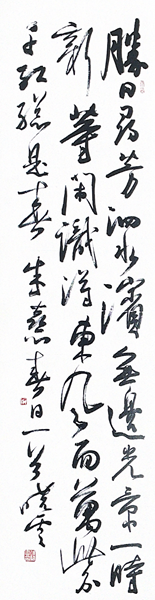 勝日尋芳泗水濱無邊光景一時
新等閑識得東風面萬紫
千紅總是春 朱熹春日一首